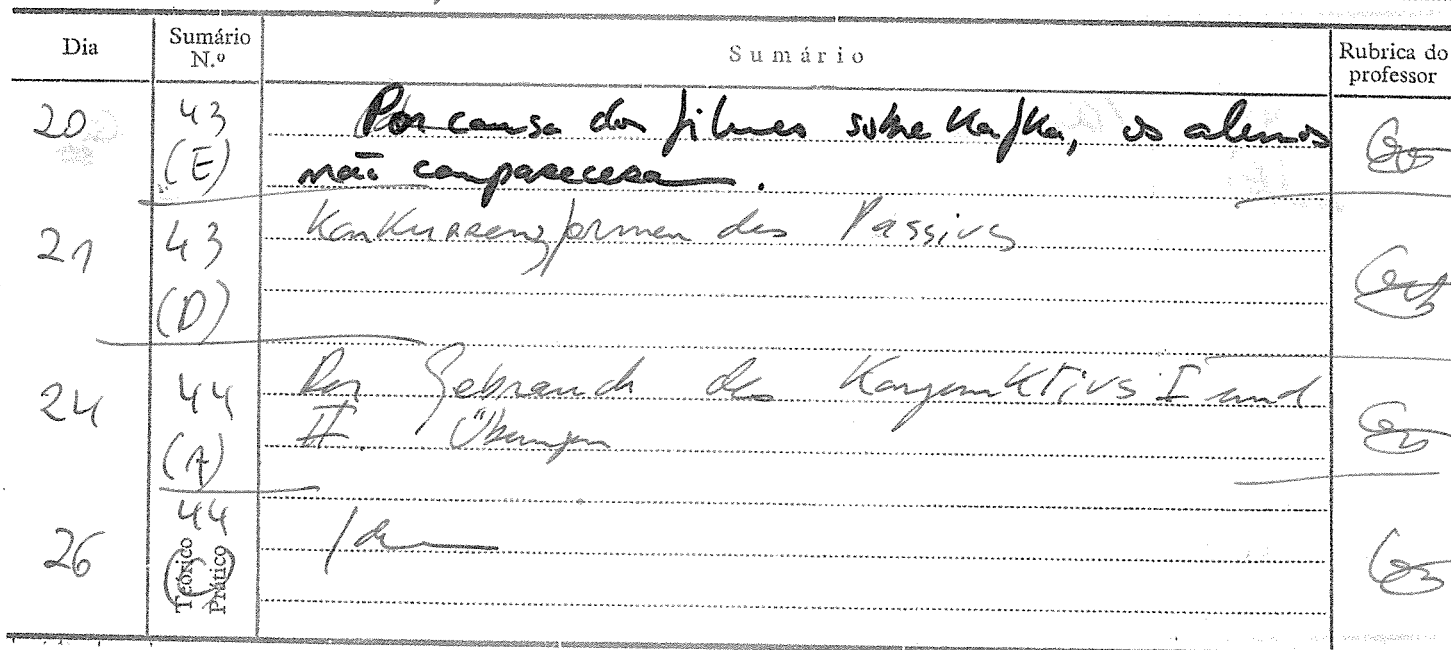 Dia Sumário N.º Sumário Rubrica do professor
20 43 (E) Por causa dos filmes sobre Kafka, os alunos
não compareceram.
21 43 (D) Konkurrenzformen des Passivs
24 44 (A) Der Gebrauch des Konjunktivs I und
II. Übungen
26 44 Teórico Prático Idem